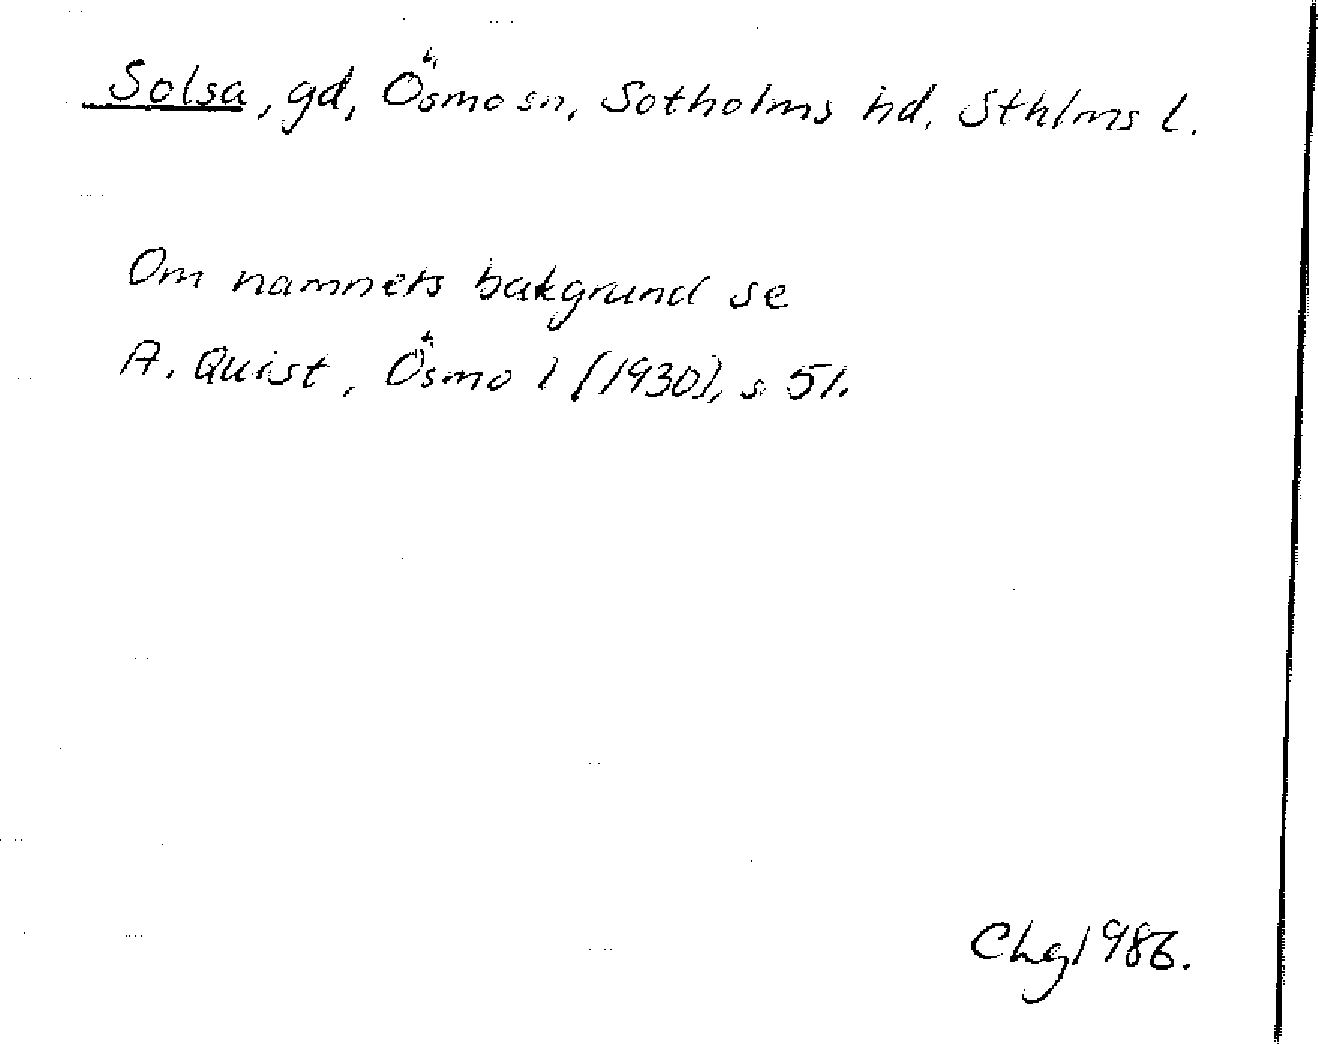 Solsa, gd, Ösmo sn, Sotholms hd, Sthlms l.
Om namnets bakgrund se
A. Quist, Ösmo 1 (1930), s 51.
Chg 1986.